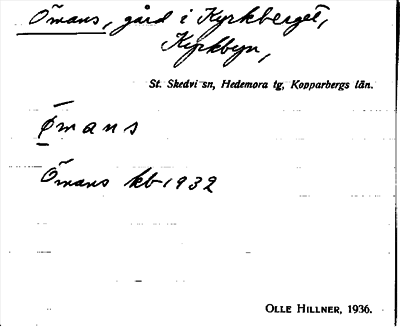 Ömans, gård i Kyrkberget,
Kyrkbyn,
St. Skedvi sn, Hedemora tg, Kopparbergs län.
ø̄mans
Ömans kb 1932
OLLE HILLNER, 1936.